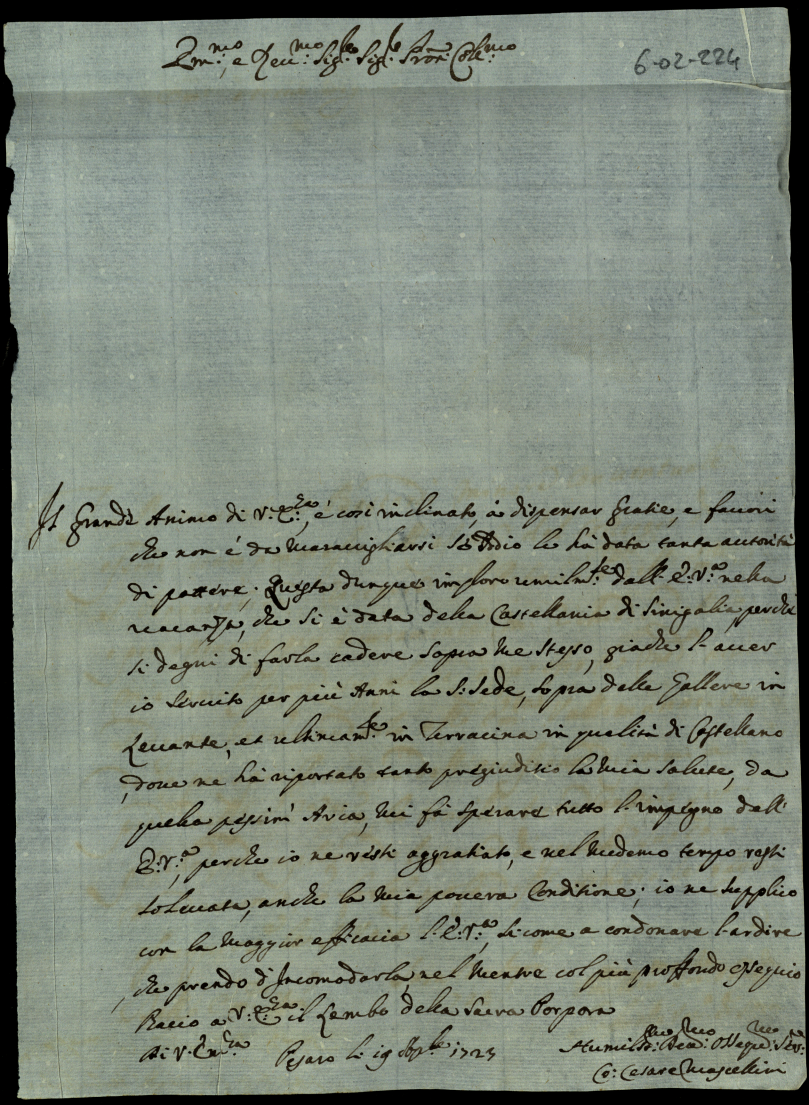 Em:mo, e Reu:mo Sig:re Sig:re Prõn: Coll:mo
6-02-224
Il grande Animo di V: E:za, é cosi inclinato, á dispensar gratie, e fauori
che non é da marauigliarsi se Iddio le há data tanta autorità
di potere; Questa dunque imploro umilm:te dall' E: V:a nella
uacanza, che si é data della Castellania di Sinigalia, perche
si degni di farla cadere sopra me stesso, giache l'auer
io seruito per più Anni la S: Sede, sopra delle Gallere in
Leuante, et ultimam:te in Terracina in qualità di Castellano
, doue ne há riportato tanto pregiuditio la mia salute, da
quella pessim' Aria, mi fà sperare tutto l'impegno dall'
E: V:a, perche io ne resti aggratiato, e nel medemo tempo resti
solleuata, anche la mia pouera Conditione; io ne supplico
con la maggior efficacia l'E: V:a, sicome a condonare l'ardire
, che prendo d'Incomodarla, nel mentre col più proffondo ossequio
Bacio a V: E:za il Lembo della Sacra Porpora
Di V: Em:za Pesaro li 19 1723 Humiliss:mo Deu:mo Ossequ:mo Ser:re
Co: Cesare Mascellini